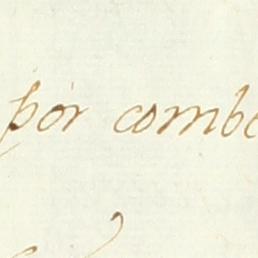 pór combe